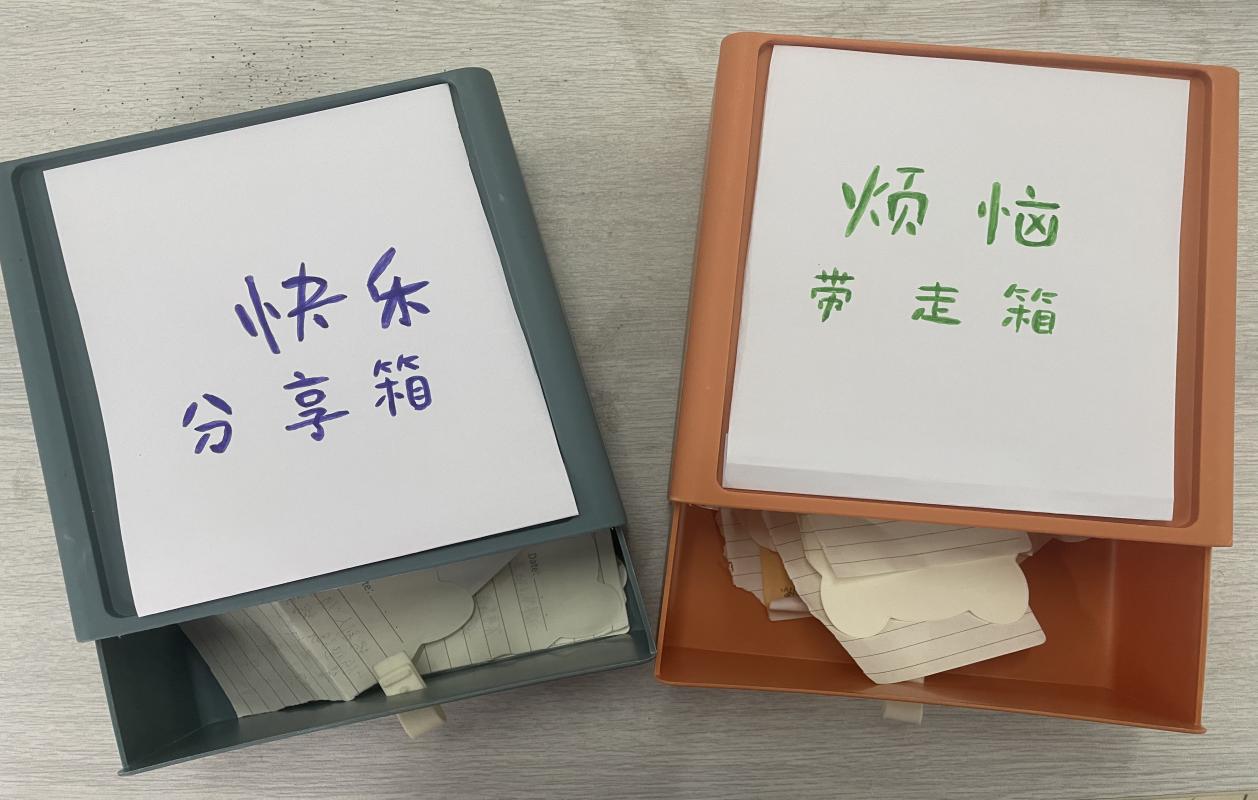 快乐
分享箱
烦恼
带走箱
Date: